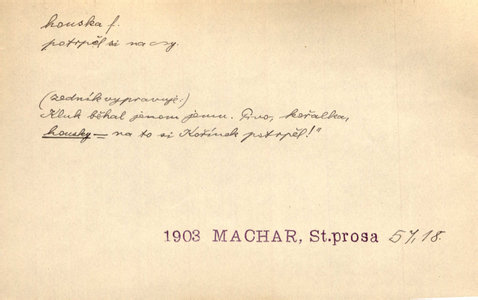 houska f.
potrpěl si na ‑y.
(zedník vypravuje:)
Kluk běhal jenom jemu. Pivo, kořalka,
housky – na to si Kořínek potrpěl!"
1903 MACHAR, St.prosa 57,18.